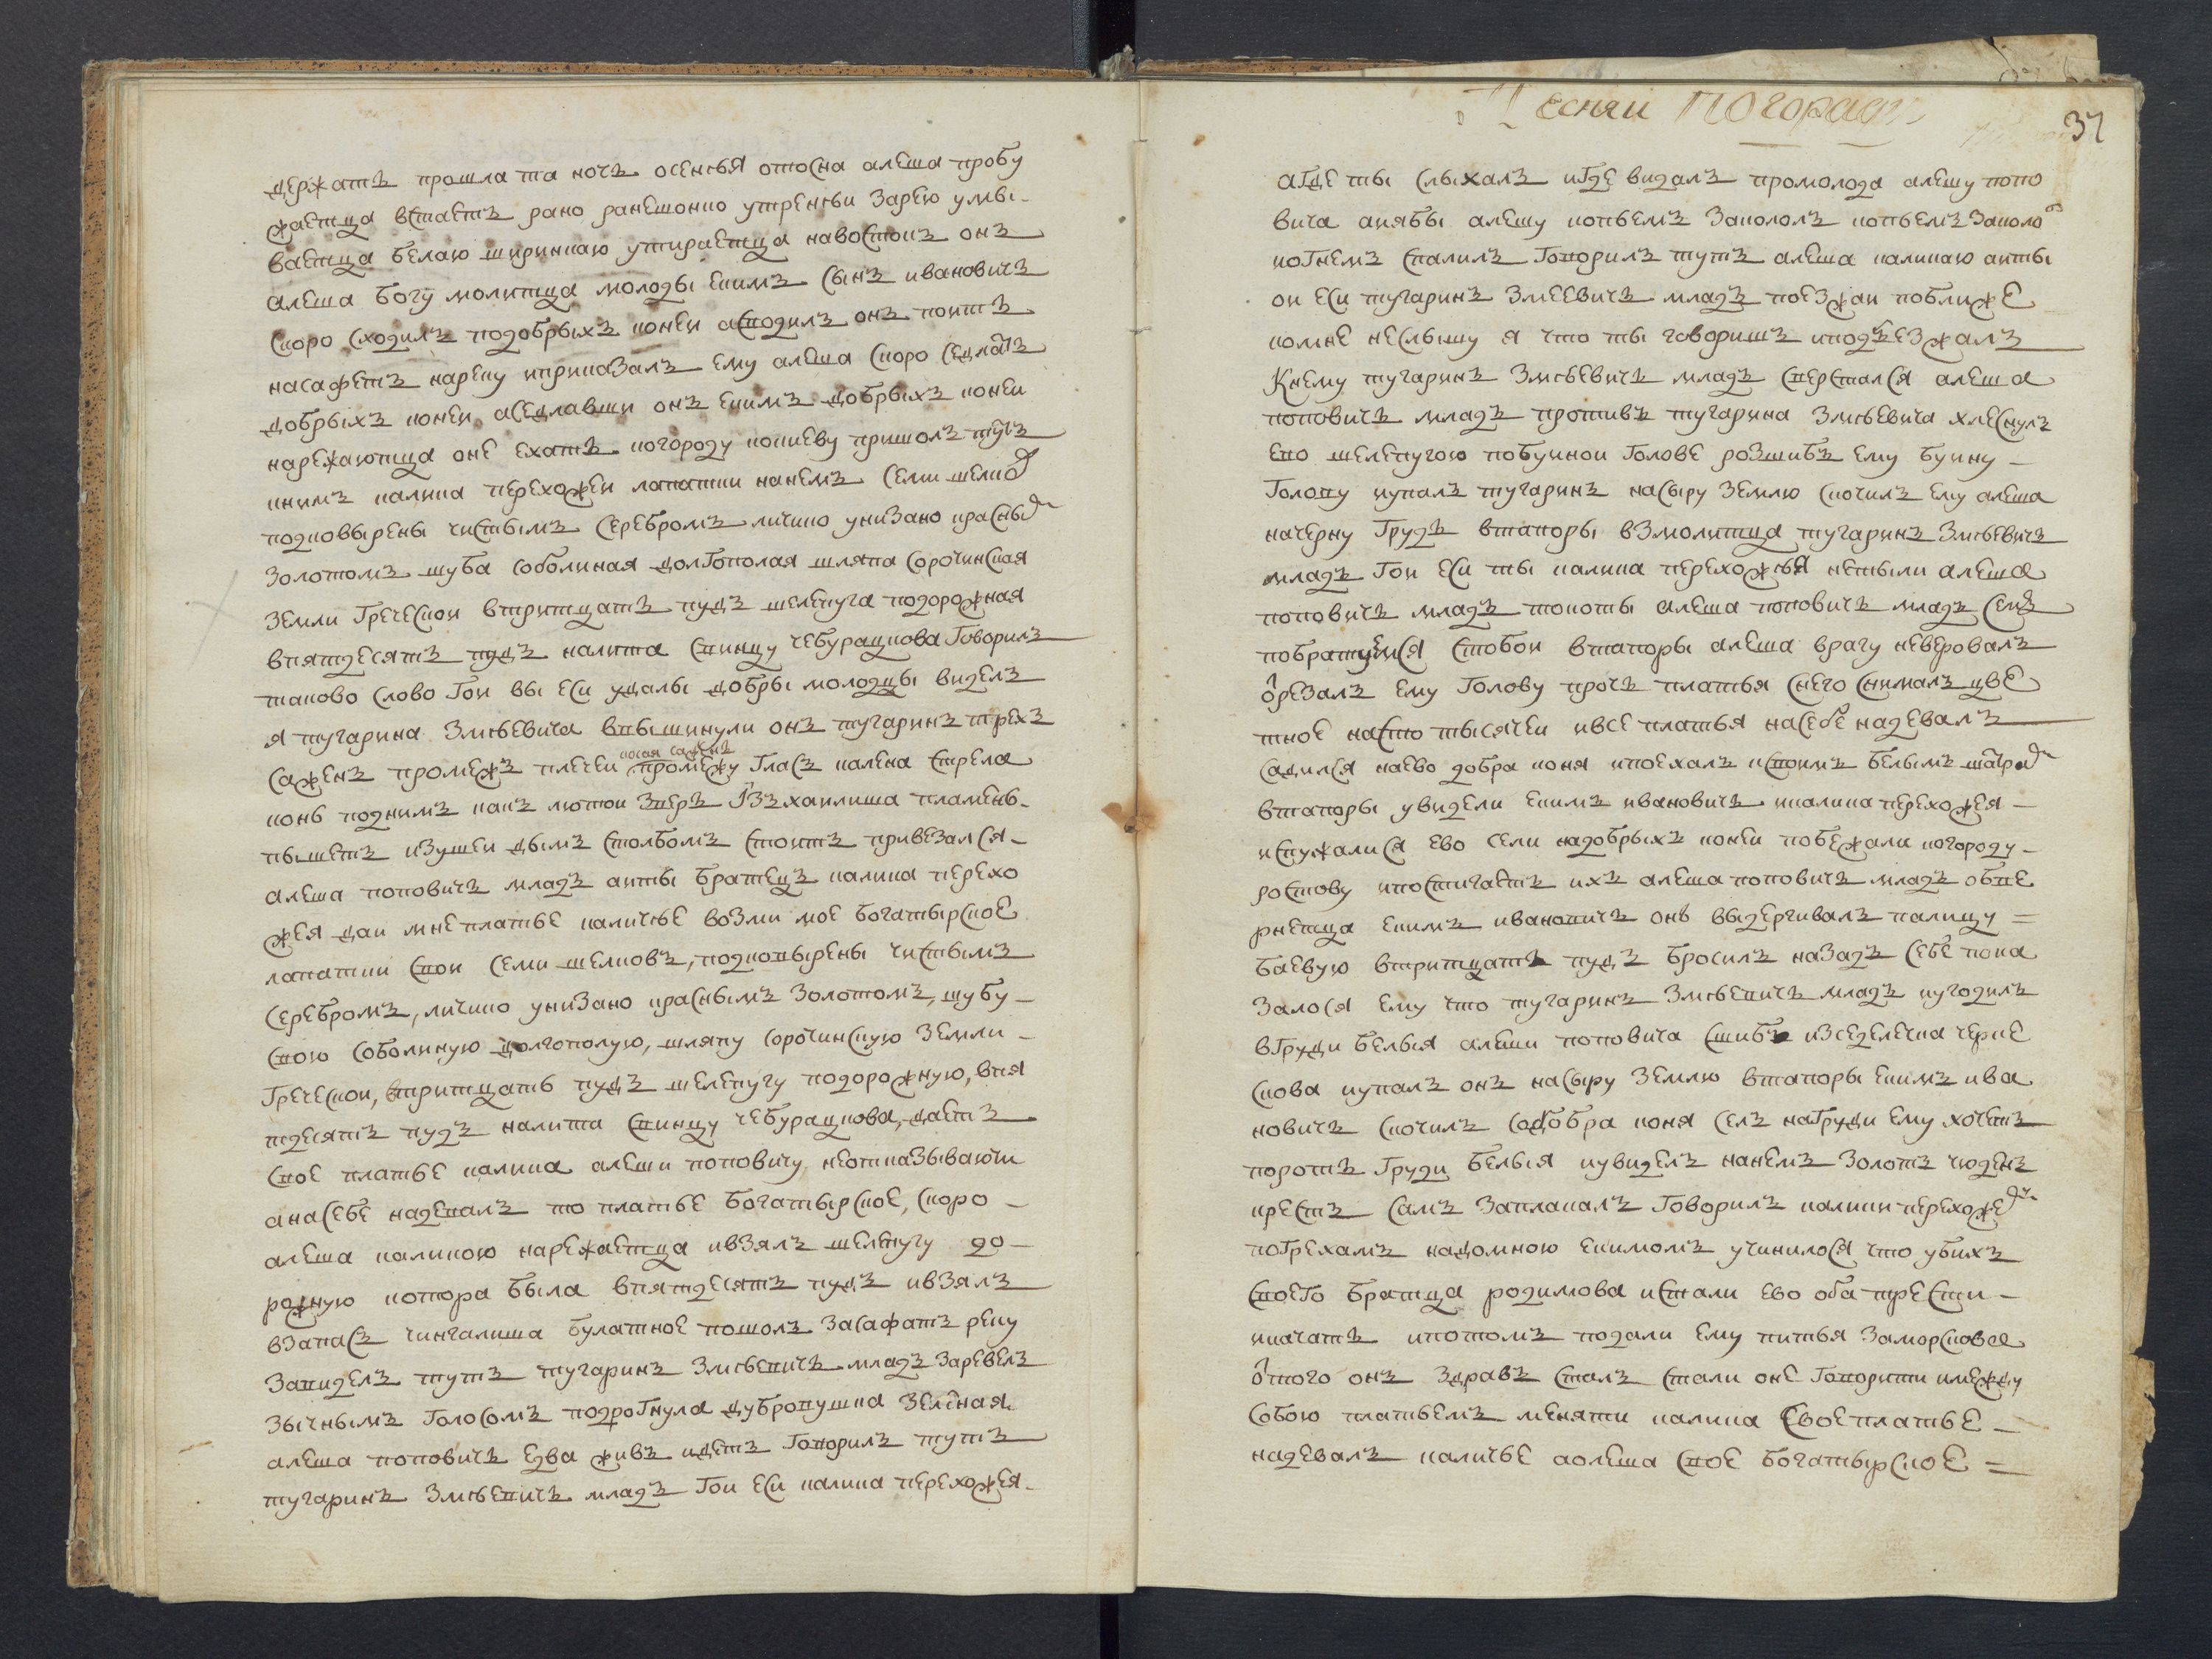 держатъ прошла та ночь осенняя отосна алеша пробу
жаетца встаетъ рано ранешонко утренеи зарею умы-
ваетца белаю ширинкаю утираетца навостокъ онъ
алеша богу молитца молоды екимъ сынъ ивановичъ
скоро сходилъ подобрыхъ конеи асводилъ онъ поитъ
насафетъ нареку иприказалъ ему алеша скоро седлатъ
добрыхъ конеи аседлавши онъ екимъ добрыхъ конеи
нарежаютца оне ехатъ когороду киеву пришолъ тутъ
книмъ калика перехожеи лапатки нанемъ семи шелко
подковырены чистымъ серебромъ личико унизано красны
золотомъ шуба соболиная долгополая шляпа сорочинская
земли греческои втритцатъ пудъ шелепуга подорожная
впятдесятъ пудъ налита свинцу чебурацкова говорилъ
таково слово гои вы еси удалы добры молодцы виделъ
я тугарина змиевича ввышинули онъ тугаринъ трехъ
саженъ промежъ плечеи косая саженъ промежу гласъ калена стрела
конь поднимъ какъ лютои зверъ изъ хаилиша пламень-
пышетъ изушеи дымъ столбомъ стоитъ привезался-
алеша поповичъ младъ аиты братецъ калика перехо
жея даи мнеплатье каличье возми мое богатырское
лапатки свои семи шелковъ, подковырены чистымъ
серебромъ, личико унизано краснымъ золотомъ, шубу-
свою соболиную долгополую, шляпу сорочинскую земли-
греческои, втритцать пудъ шелепугу подорожную, впя
тдесятъ пудъ налита свинцу чебурацкова, даетъ
свое платье калика алеши поповичу неотказываючи
анасебе надевалъ то платье богатырское, скоро-
алеша каликою нарежаетца ивзялъ шелепугу до-
рожную котора была впятдесятъ пудъ ивзялъ
взапасъ чингалиша булатное пошолъ засафатъ реку
завиделъ тутъ тугаринъ змиевичъ младъ заревелъ
зычнымъ голосомъ подрогнула дубровушка зеленая
алеша поповичъ едва живъ идетъ говорилъ тутъ
тугаринъ змиевичъ младъ гои еси калика перехожея-
Песняи
37
агде ты слыхалъ игде видалъ промолода алешу попо
вича аиябы алешу копьемъ закололъ копьемъ заколо
иогнемъ спалилъ говорилъ тутъ алеша каликаю аиты
ои еси тугаринъ змеевичъ младъ поезжаи поближе
комне неслышу я что ты говоришъ иподъезжалъ
Кнему тугаринъ змиевичъ младъ сверстался алеша
поповичъ младъ противъ тугарина змиевича хлеснулъ
ево шелепугою побуинои голове розшибъ ему буину-
голову иупалъ тугаринъ насыру землю скочилъ ему алеша
начерну грудъ втапоры взмолитца тугаринъ змиевичъ
младъ гои еси ты калика перехожья нетыли алеша
поповичъ младъ токоты алеша поповичъ младъ семъ
побратуемся стобои втапоры алеша врагу неверовалъ
отрезалъ ему голову прочъ платья снего снималъ цве
тное насто тысячеи ивсе платья насебе надевалъ
садился наево добра коня ипоехалъ ксвоимъ белымъ шатра
втапоры увидели екимъ ивановичъ икалика перехожея-
испужалися ево сели надобрыхъ конеи побежали когороду-
ростову ипостигаетъ ихъ алеша поповичъ младъ обве
рнетца екимъ ивановичъ онъ выдергивалъ палицу=
баевую втритцатъ пудъ бросилъ назадъ себе пока
залося ему что тугаринъ змиевичъ младъ иугодилъ
вгруди белыя алеши поповича сшибъ изседелечка черке
скова иупалъ онъ насыру землю втапоры екимъ ива
новичъ скочилъ содобра коня селъ нагруди ему хочетъ
поротъ груди белыя иувиделъ нанемъ золотъ чюденъ
крестъ самъ заплакалъ говорилъ калики перехоже
погрехамъ надомною екимомъ учинилося что убихъ
своего братца родимова истали ево оба трести-
икачатъ ипотомъ подали ему питья заморскова
отого онъ здравъ сталъ стали оне говорити имежду
собою платьемъ меняти калика свое платье-
надевалъ каличье аолеша свое богатырское=